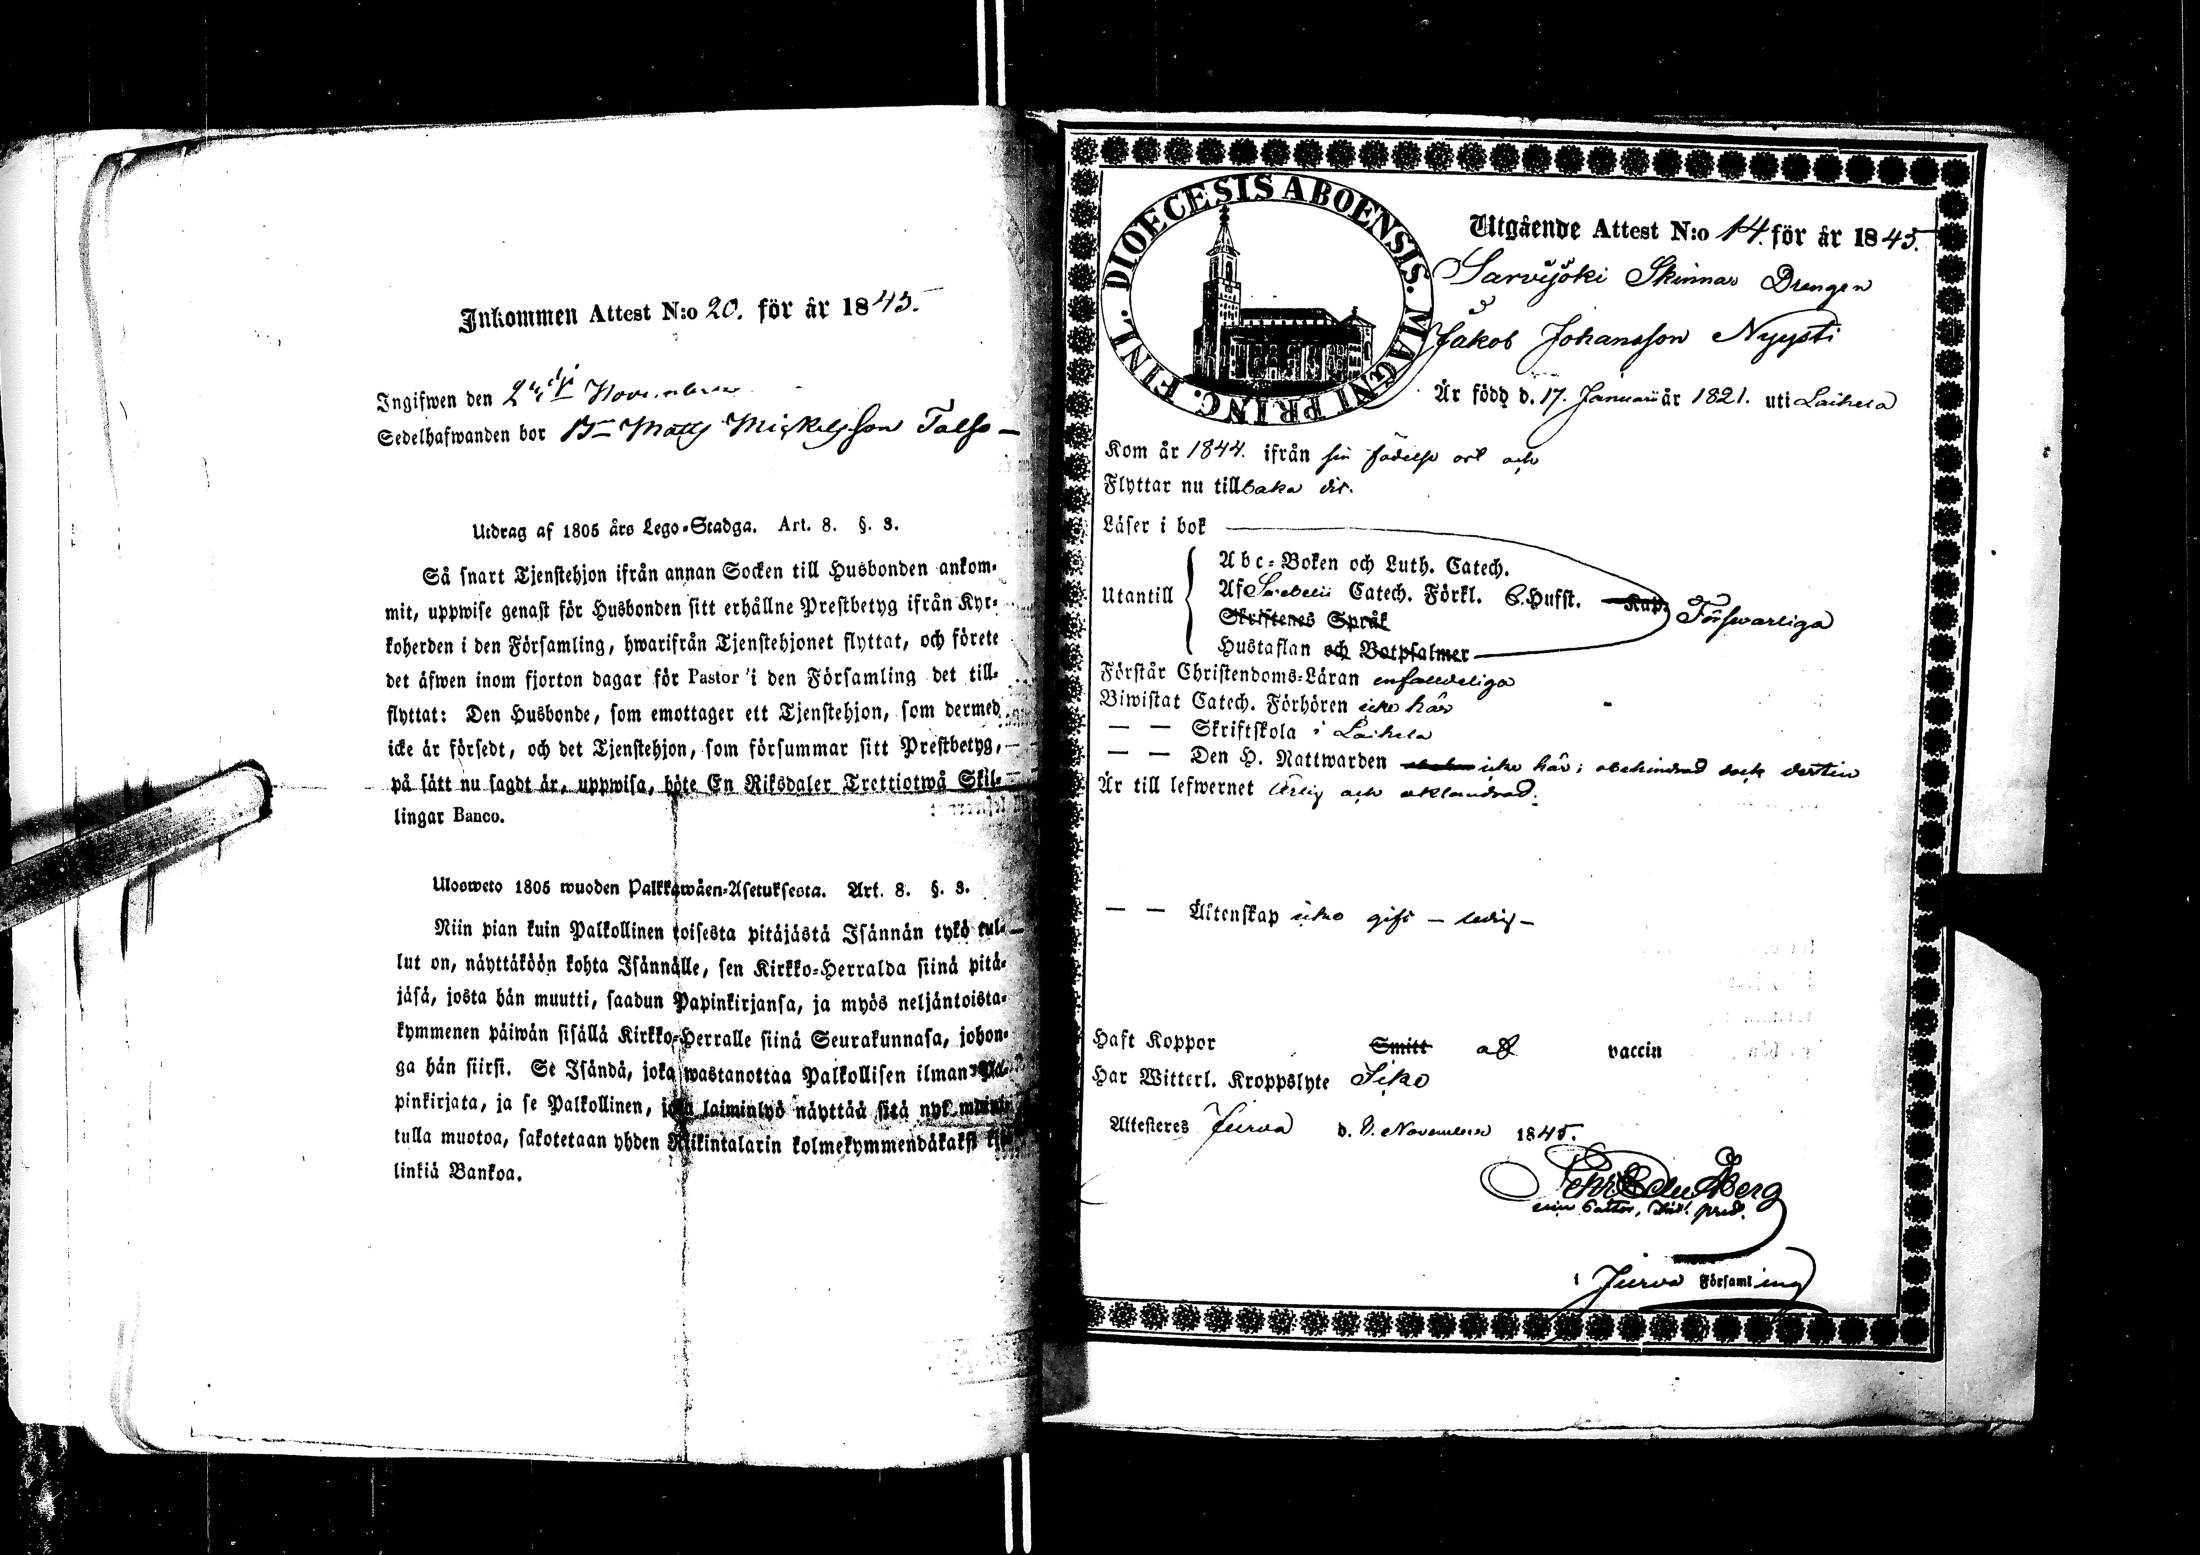 Inkommen Attest N:o 20. för år 1845.
Ingifwen den November
Sedelhafwanden bor Matts Mickelsson Talso
Utdrag af 1805 års Lego-Stadga. Art. 8. §. 3.
Så snart Tjenstehjon ifrån annan Socken till Husbonden ankom-
mit, uppwise genast för Husbonden sitt erhållne Prestbetyg ifrån Kyr-
koherden i den Församling, hwarifrån Tjenstehjonet flyttat, och förete
det äfwen inom fjorton dagar för Pastor i den Församling det till-
flyttat: Den Husbonde, som emottager ett Tjenstehjon, som dermed
icke är försedt, och det Tjenstehjon, som försummar sitt Prestbetyg,
på sätt nu sagdt är, uppwisa, böte En Riksdaler Trettiotwå Skil-
lingar Banco.
Ulosweto 1805 wuoden Palkkawäen-Asetuksesta. Art. 8. §. 3.
Niin pian kuin Palkollinen toisesta pitäjästä Isännän tykö tul-
lut on, näyttäköön kohta Isännälle, sen Kirkko-Herralda siinä pitä-
jäsä, josta hän muutti, saadun Papinkirjansa, ja myös neljäntoista-
kymmenen päiwän sisällä Kirkko-Herralle siinä Seurakunnasa, johon-
ga hän siirsi. Se Isändä, joka wastanottaa Palkollisen ilman Pa-
pinkirjata, ja se Palkollinen, joka laiminlyö näyttää sitä nyt
tulla muotoa, sakotetaan yhden Riikintalarin kolmekymmendäkaksi
linkiä Bankoa.
DIOECESIS ABOENSIS. MAGNI PRINC. FINL.
Utgående Attest N:o 14. för år 1845.
Sarvijoki Skinnar Drengen
Jakob Johansson Nyysti
Är född d. 17. Januarii år 1821. uti Laihela
Kom år 1844. ifrån sin födelse ort och
Flyttar nu tillbaka dit.
Läser i bok
Utantill
Abc-Boken och Luth. Catech.
Af Sverbelii Catech. Förkl. Husst. Kap.
Skriftenes Språk
Hustaflan och Botpsalmer
Förswarliga
Förstår Christendoms-Läran enfaldeliga
Biwistat Catech. Förhören icke här
— — Skriftskola i Laihela
— — Den H. Nattwarden icke här; obehindrad dock dertill
Är till lefwernet ärlig och oklandrad.
— — Äktenskap icke gift — ledig —
Haft Koppor Smitt af vaccin
Har Witterl. Kroppslyte Icke
Attesteres Jurva d. 9. November 1845.
Pehr Edv. Åberg
i Jurva Församling